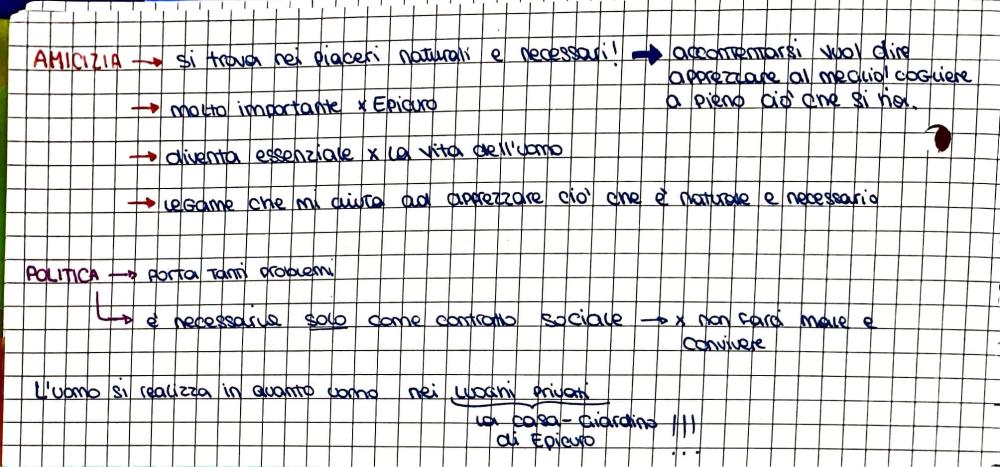 AMICIZIA → si trova nei piaceri naturali e necessari! → accontentarsi vuol dire
apprezzare al meglio! cogliere
a pieno ciò che si ha.
→ molto importante x Epicuro
→ diventa essenziale x la vita dell'uomo
→ legame che mi aiuta ad apprezzare cio' che è naturale e necessario
POLITICA → porta tanti problemi
→ è necessaria solo come contratto sociale → x non farci male e
convivere
L'uomo si realizza in quanto uomo nei luoghi privati
la casa-Giardino !!!
di Epicuro